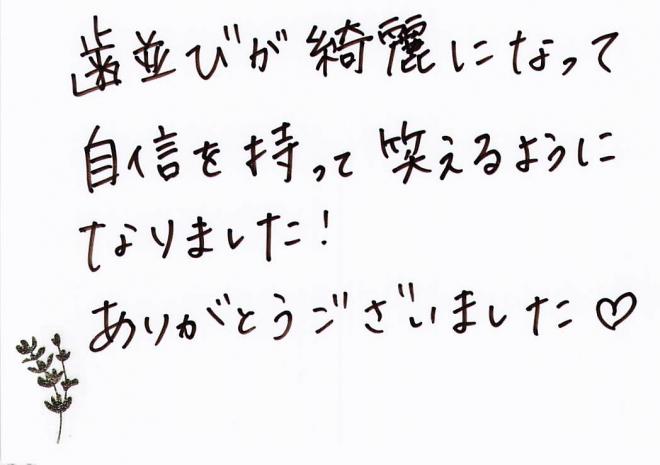 歯並びが綺麗になって
自信を持って笑えるように
なりました!
ありがとうございました♡